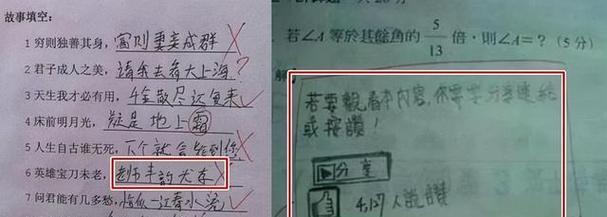 故事填空:
1 穷则独善其身，富则妻妾成群
2 君子成人之美，去看大上海
3 天生我才必有用，千金散尽还复来
4 床前明月光，疑是地上霜
5 人生自古谁无死，下个就会轮到你
6 英雄宝刀未老，老师丰韵犹存
7 问君能有几多愁，恰似一江春水流
若∠A等於其餘角的 5/13 倍，則∠A=？(5分)
若要觀看本內容，你要分享連結
或按讚！
分享
人說讚